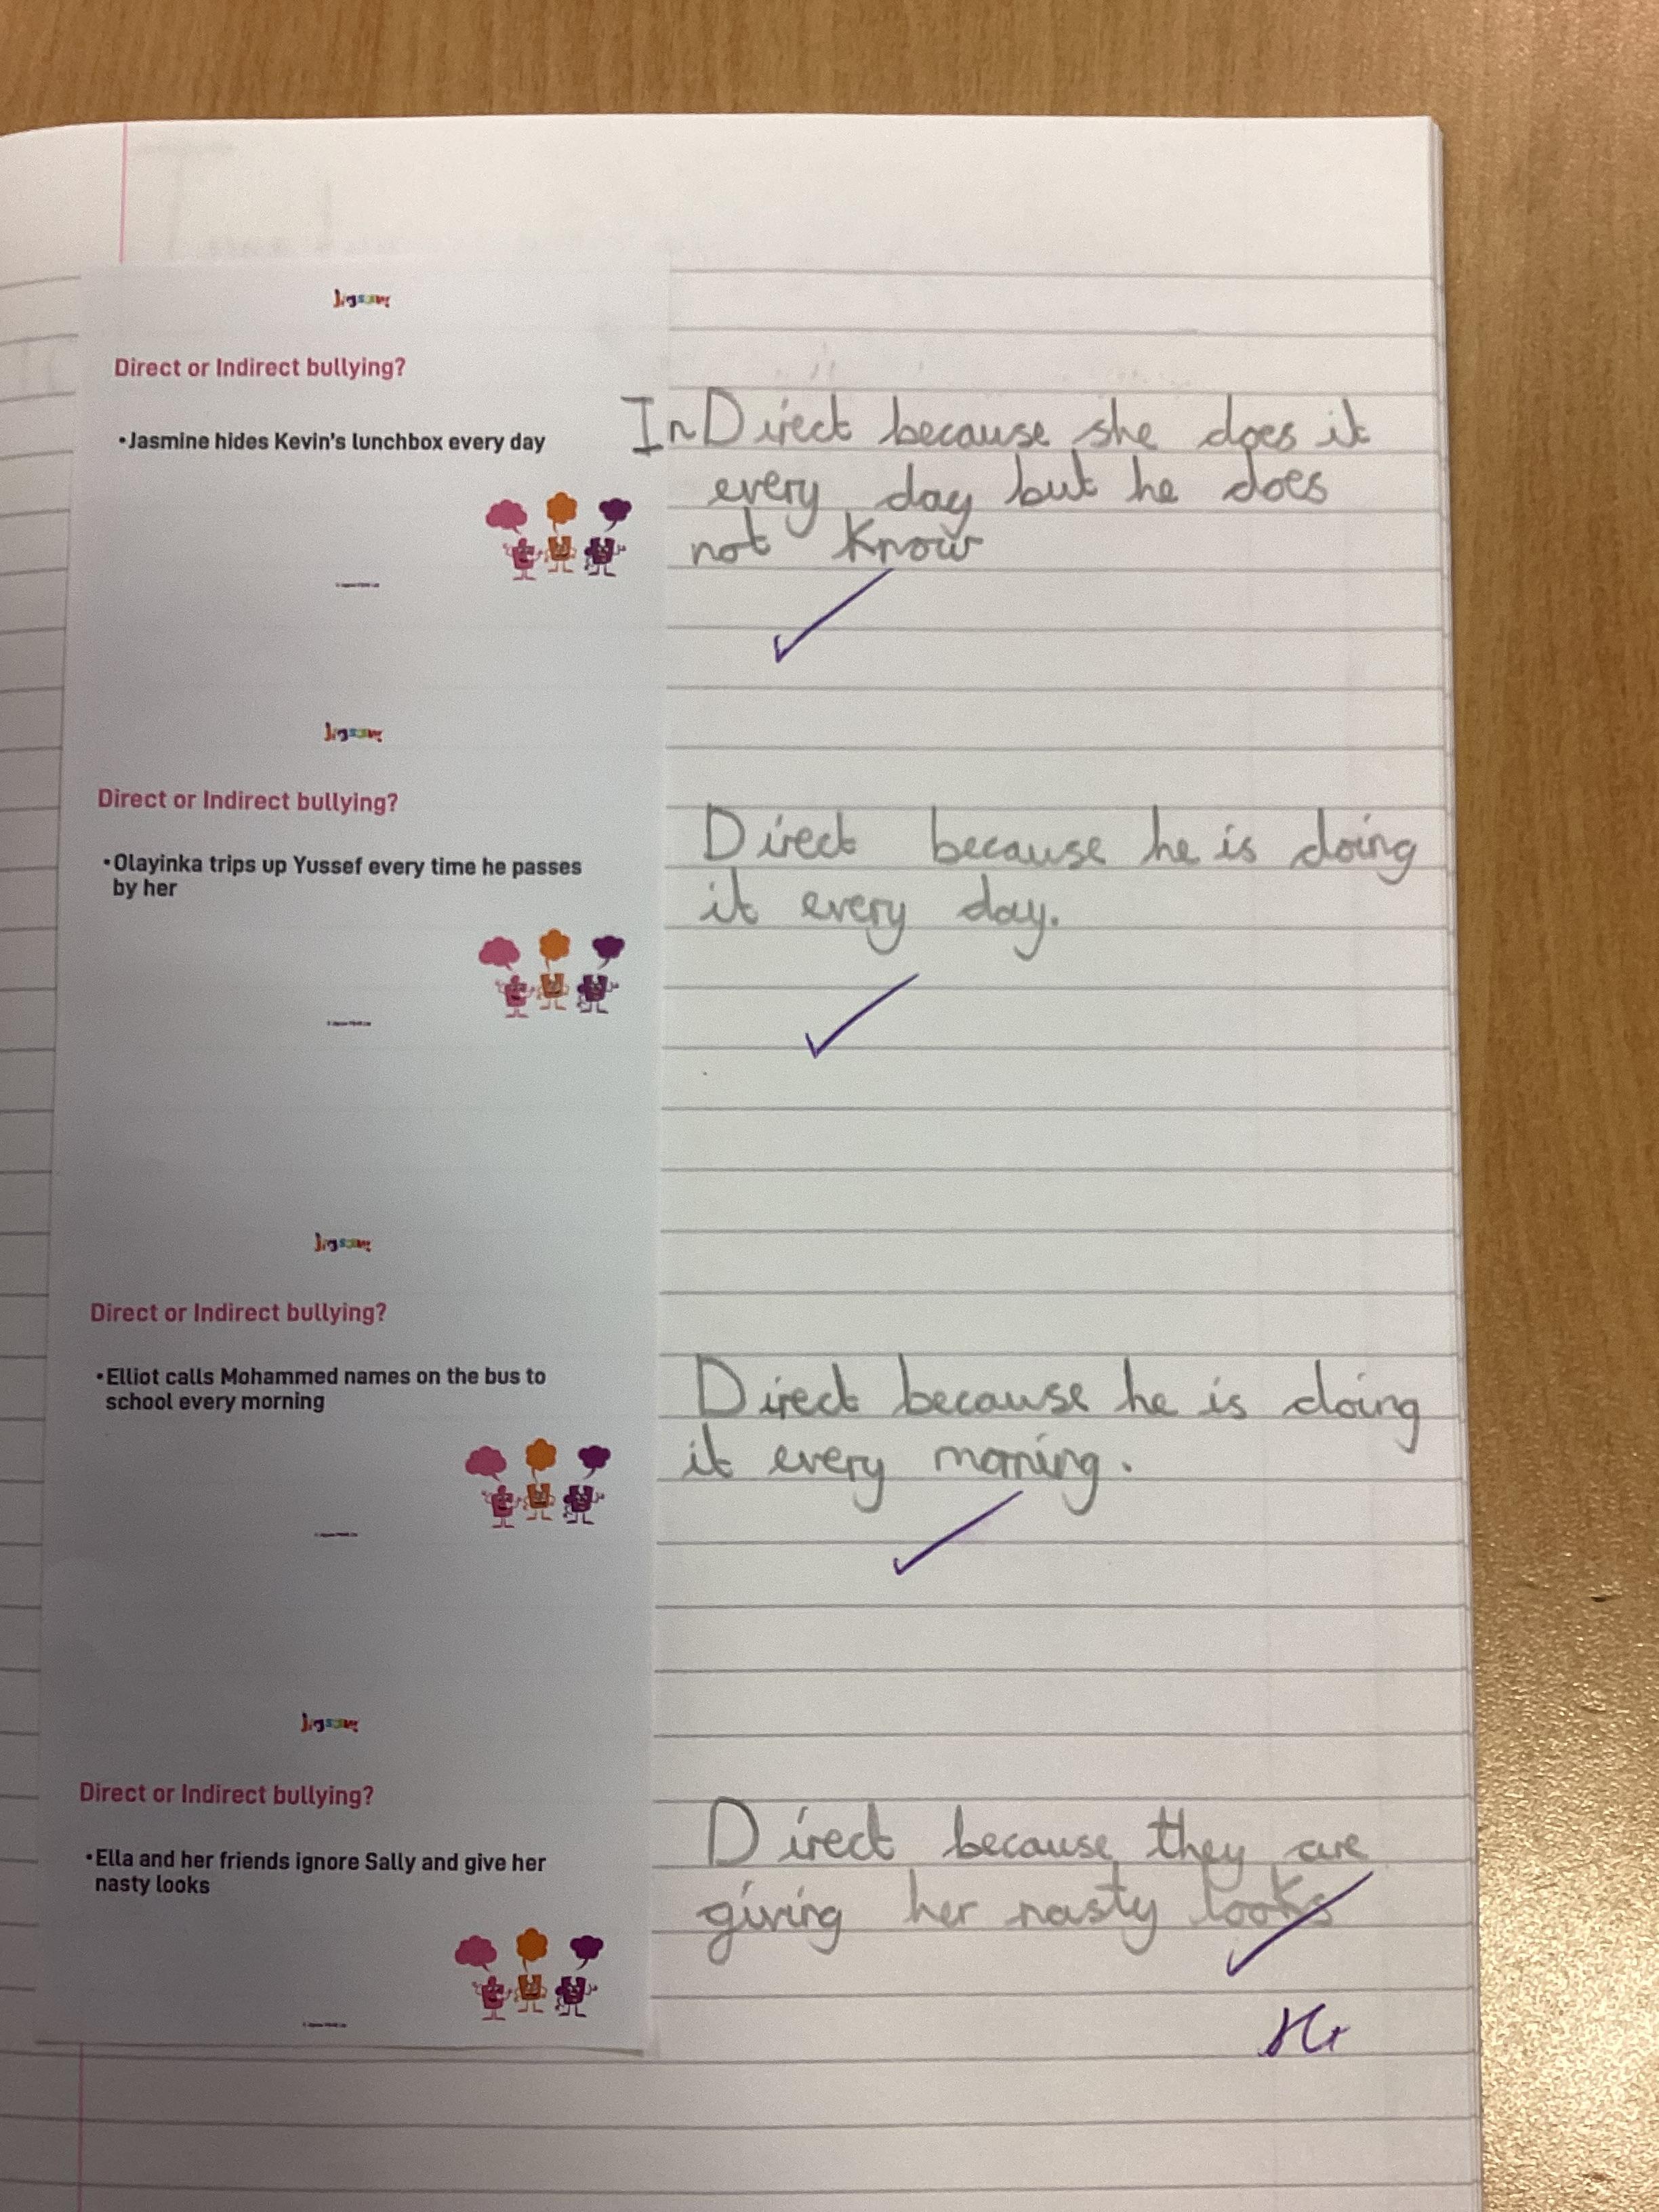 Jigsaw
Direct or Indirect bullying?
•Jasmine hides Kevin's lunchbox every day
InDirect because she does it
every day but he does
not Know
Jigsaw
Direct or Indirect bullying?
•Olayinka trips up Yussef every time he passes
by her
Direct because he is doing
it every day.
Jigsaw
Direct or Indirect bullying?
•Elliot calls Mohammed names on the bus to
school every morning
Direct because he is doing
it every morning.
Jigsaw
Direct or Indirect bullying?
•Ella and her friends ignore Sally and give her
nasty looks
Direct because they are
giving her nasty looks